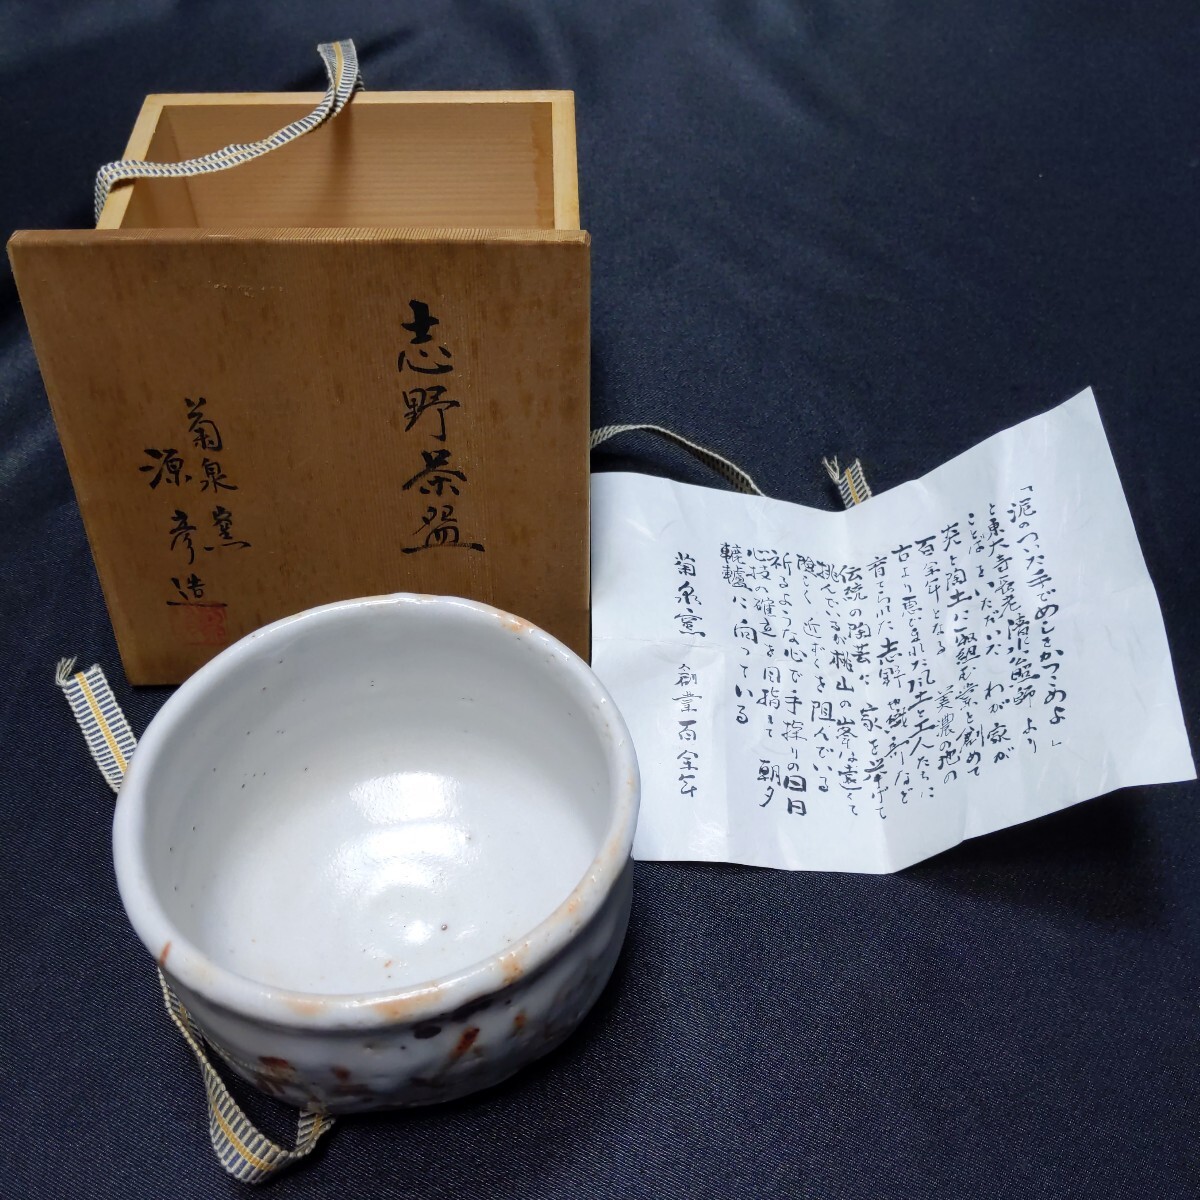 志野茶盌
菊泉窯
源彦造
「泥のついた手でめしをかっこめよ」
と東大寺長老清水公照師より
ことばをいただいた わが家が
炎と陶土に取組む業を創めて
百余年となる 美濃の地の
古より恵まれた風土と工人たちに
育てられた 志野や織部など
伝統の陶芸に 家を挙げて
挑んでいるが桃山の峯は遠くて
険しく 近づくを阻んでいる
祈るような心で手探りの日日
心技の確立を目指して 朝夕
轆轤に向っている
菊泉窯 創業百余年